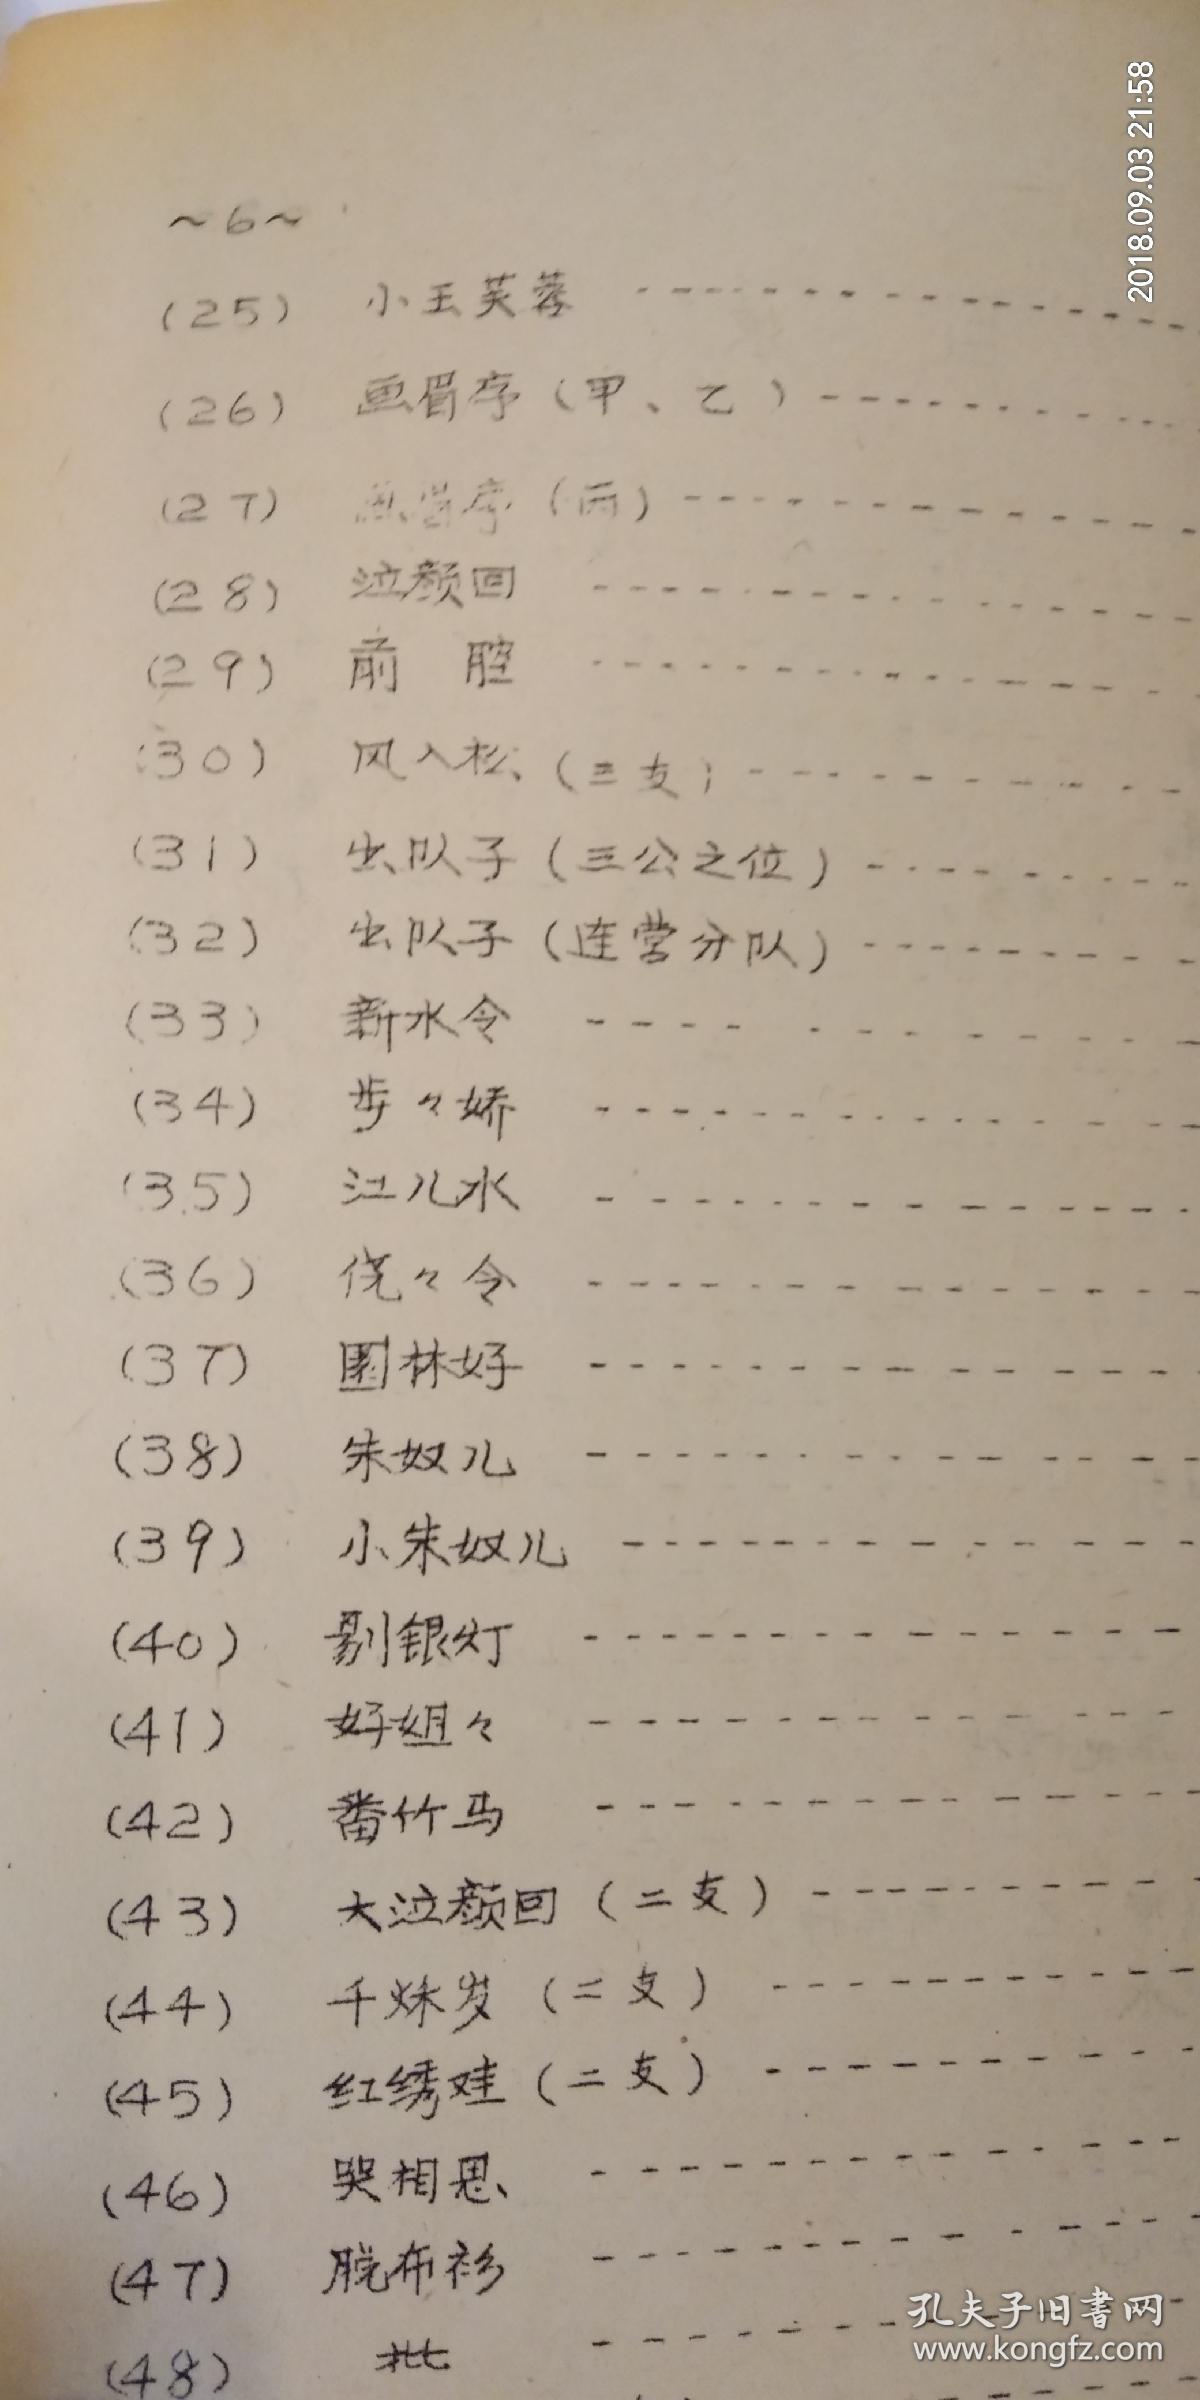 2018.09.03 21:58
~6~
(25) 小玉芙蓉
(26) 画眉序(甲、乙)
(27) 画眉序(丙)
(28) 泣颜回
(29) 前 腔
(30) 风入松(三支)
(31) 出队子(三公之位)
(32) 出队子(连营分队)
(33) 新水令
(34) 步々娇
(35) 江儿水
(36) 侥々令
(37) 园林好
(38) 朱奴儿
(39) 小朱奴儿
(40) 剔银灯
(41) 好姐々
(42) 番竹马
(43) 大泣颜回(二支)
(44) 千秋岁(二支)
(45) 红绣鞋(二支)
(46) 哭相思
(47) 脱布衫
(48)
孔夫子旧书网
www.kongfz.com